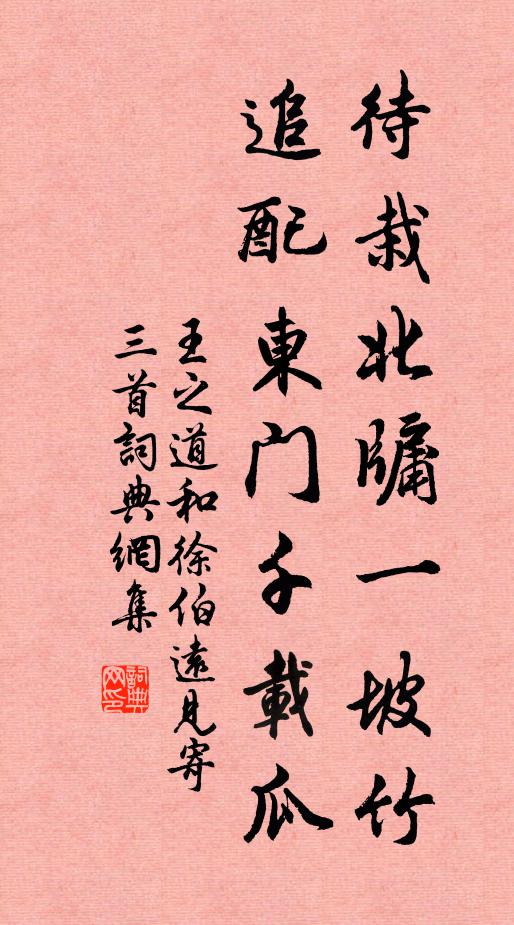 待栽北牗一坡竹
追配東門千載瓜
王之道和徐伯遠見寄
三首詞典網集
詞典网印